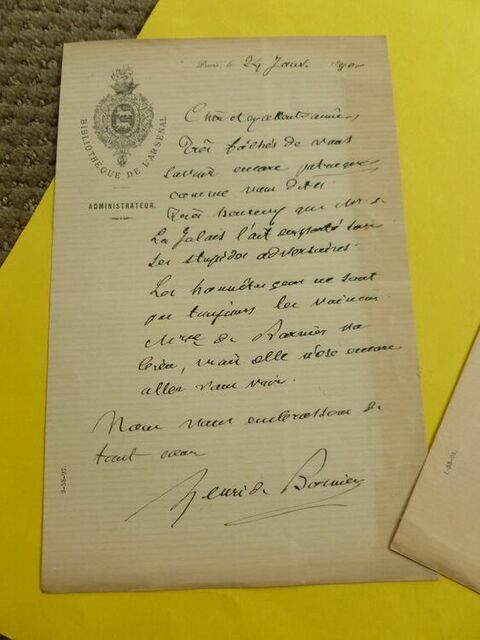 Paris, le 24 Janv. 190
BIBLIOTHÈQUE DE L'ARSENAL
ADMINISTRATEUR.
Chère et excellente amie,
Très fâchés de vous
savoir encore patraque
comme vous dites
Très heureux que
La Jalais l'ait emporté sur
ses stupides adversaires.
Les honnêtes gens ne sont
pas toujours les vaincus
Mme de Bornier va
bien, mais elle n'ose encore
aller vous voir.
Nous vous embrassons de
tout cœur
Henri de Bornier